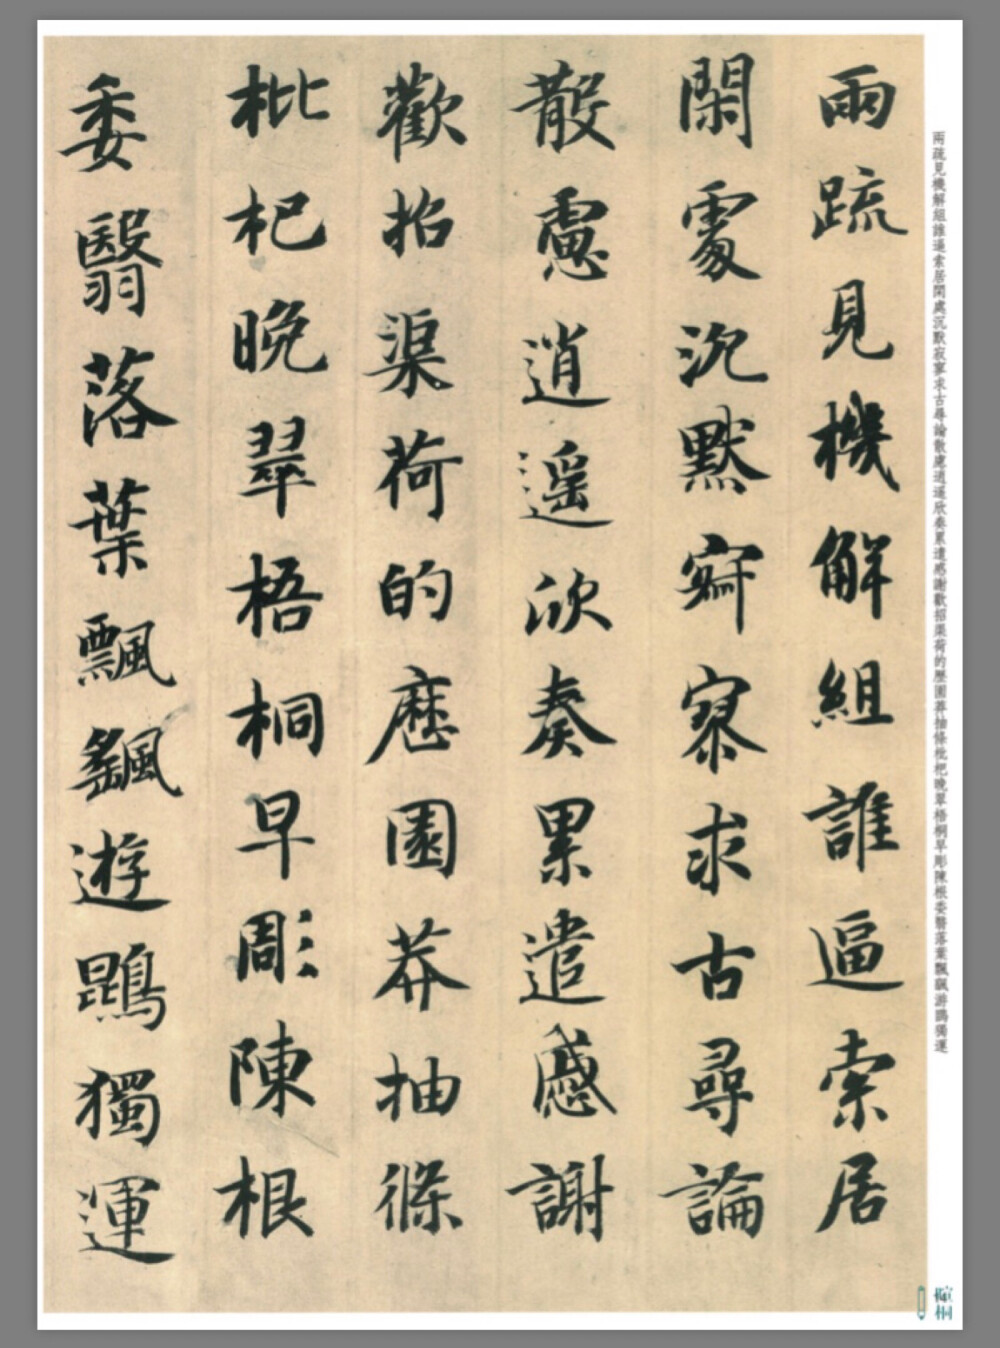 兩疏見機解組誰逼索居
閑處沉默寂寥求古尋論
散慮逍遥欣奏累遣慼謝
歡招渠荷的歷園莽抽條
枇杷晚翠梧桐早彫陳根
委翳落葉飄颻遊鵾獨運
兩疏見機解組誰逼索居閑處沉默寂寥求古尋論散慮逍遥欣奏累遣感謝歡招渠荷的歷園莽抽條枇杷晚翠梧桐早彫陳根委翳落葉飄飖游鵾獨運